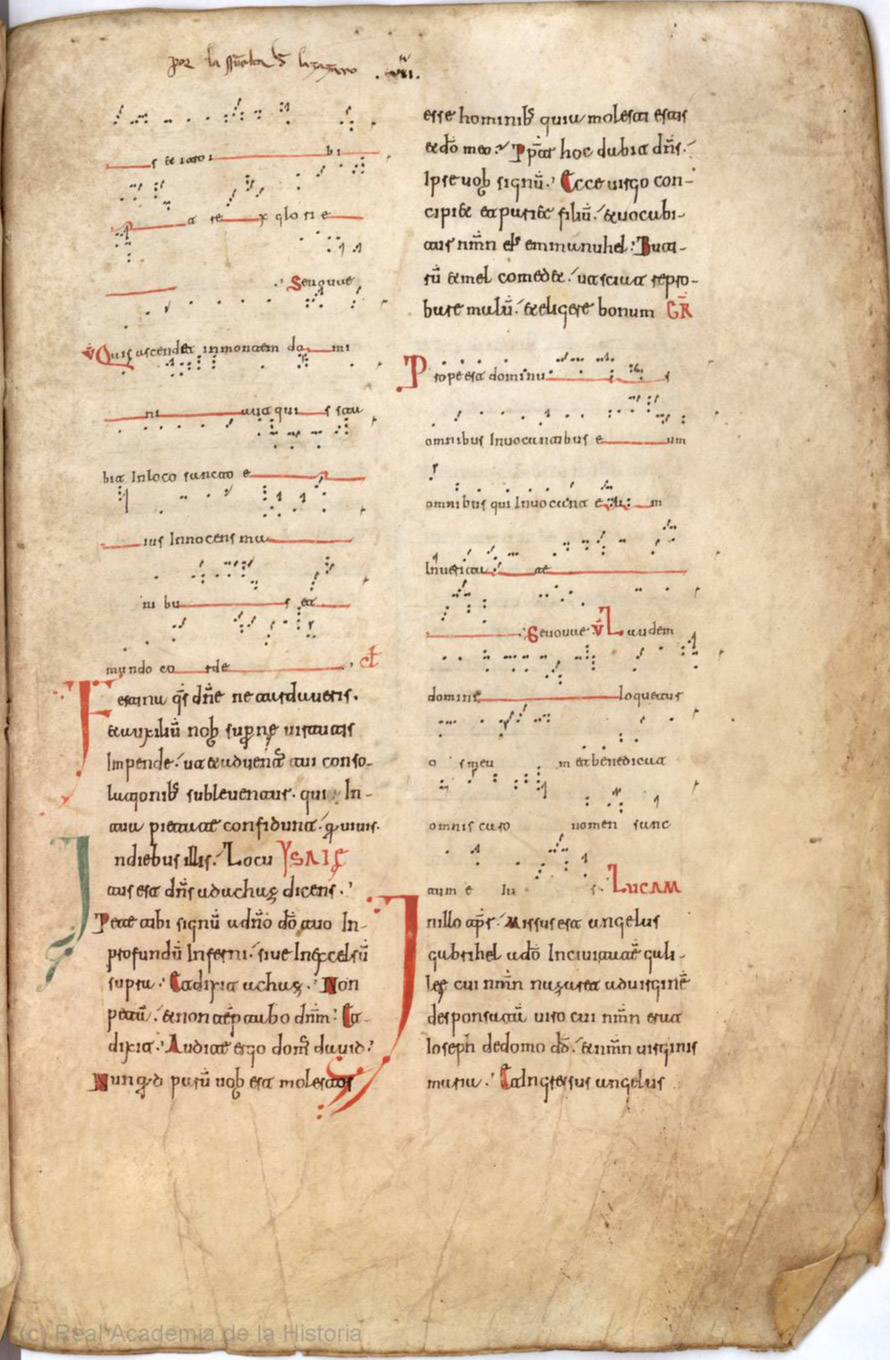 por la
.VII.
s & intro i bi
a re x glo ri e
Seuouae
℣ Quis ascendet in montem do mi
ni aut qui s sta
bit In loco sancto e
ius Innocens ma
ni bu s et
mundo co rde
Festina q̄s dn̄e ne tardaveris.
& auxiliū nob sup̄ne virtutis
Impende. ut adventꝰ tui conso-
lationibꝰ subleventur. qui In
tua pietate confidunt. q̄ vivis.
In diebus illis. Locu YSAIE
tus est dn̄s ad achaz dicens.
Pete tibi signū a dn̄o dō tuo In
profundū Inferni. sive In excelsū
supra. Et dixit achaz. Non
petā. & non aeptabo dn̄m. Et
dixit. Audite ergo domꝰ david.
Nunq̄d parū vob est molestos
esse hominibꝰ quia molesti estis
& dō meo. Ppt̄ hoc dabit dn̄s.
Ipse vob signū. Ecce virgo con-
cipi& et pari& filiū. & vocabi-
tur nm̄n eiꝰ emmanuhel. Buti-
rū & mel comed&. ut sciat repro-
bare malū. & eligere bonum GR̄
Prope est dominu s
omnibus Invocantibus e um
omnibus qui Invocant e m
In verita te
Seuouae ℣ Laudem
domini loquetur
os meu m et benedicat
omnis caro nomen sanc
tum e iu s. LUCAM
In illo tp̄r. Missus est angelus
gabrihel a dō In civitatē gali-
lee cui nm̄n nazaret ad virginē
desponsatā viro cui nm̄n erat
Ioseph de domo dd̄. & nm̄n virginis
maria. Et Ingressus angelus
(c) Real Academia de la Historia